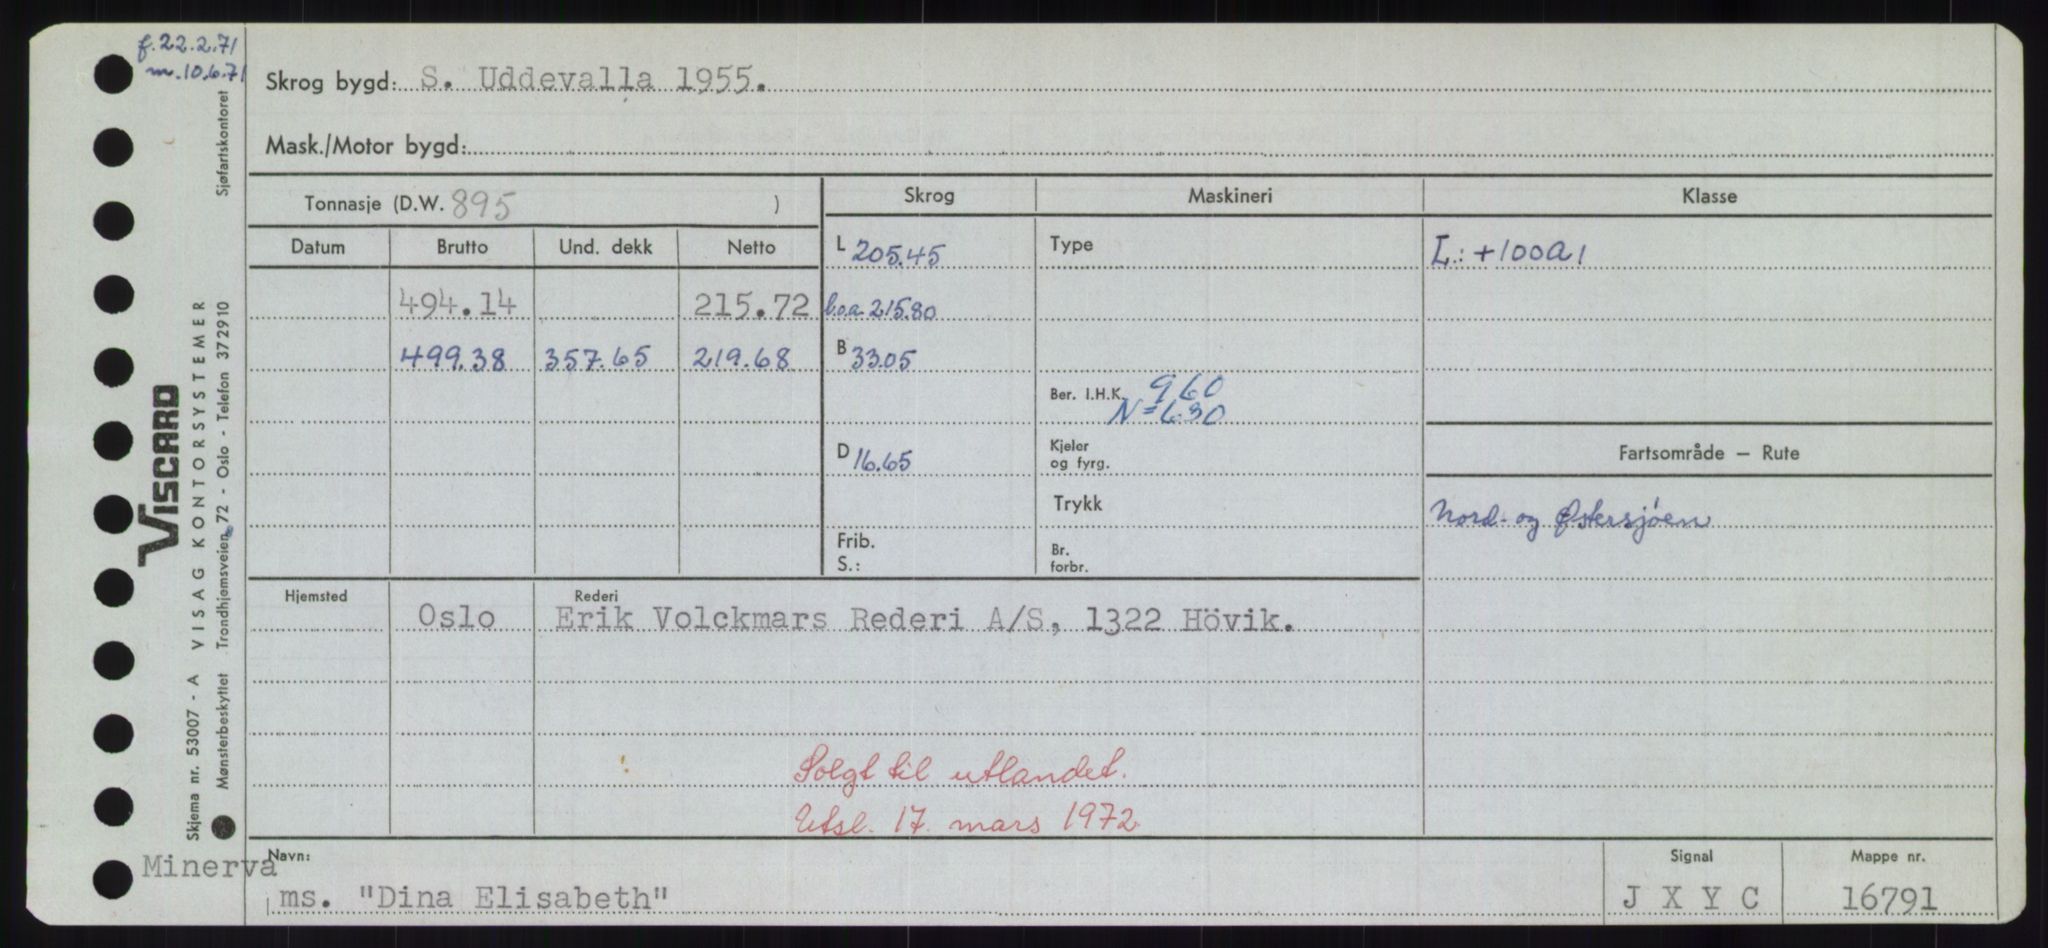 f. 22.2.71
m. 10.6.71
Skrog bygd: S. Uddevalla 1955.
Mask./Motor bygd:
Tonnasje (D.W. 895 )
Skrog
Maskineri
Klasse
Datum
Brutto
Und. dekk
Netto
L 205.45
Type
L: +100A1
494.14
215.72
l.o.a. 215.80
499.38
357.65
219.68
B 33.05
Ber. I.H.K. 960
N=630
Fartsområde — Rute
D 16.65
Kjeler
og fyrg.
Trykk
Nord- og Østersjøen
Frib.
S.:
Br.
forbr.
Hjemsted
Oslo
Rederi
Erik Volckmars Rederi A/S, 1322 Hövik.
Solgt til utlandet.
Utsl. 17. mars 1972
Minerva
Navn:
ms. "Dina Elisabeth"
Signal
J X Y C
Mappe nr.
16791
VISCARD
Skjema nr. 53007 - A VISAG KONTORSYSTEMER
Mønsterbeskyttet Trondhjemsveien 72 - Oslo - Telefon 372910 Sjøfartskontoret